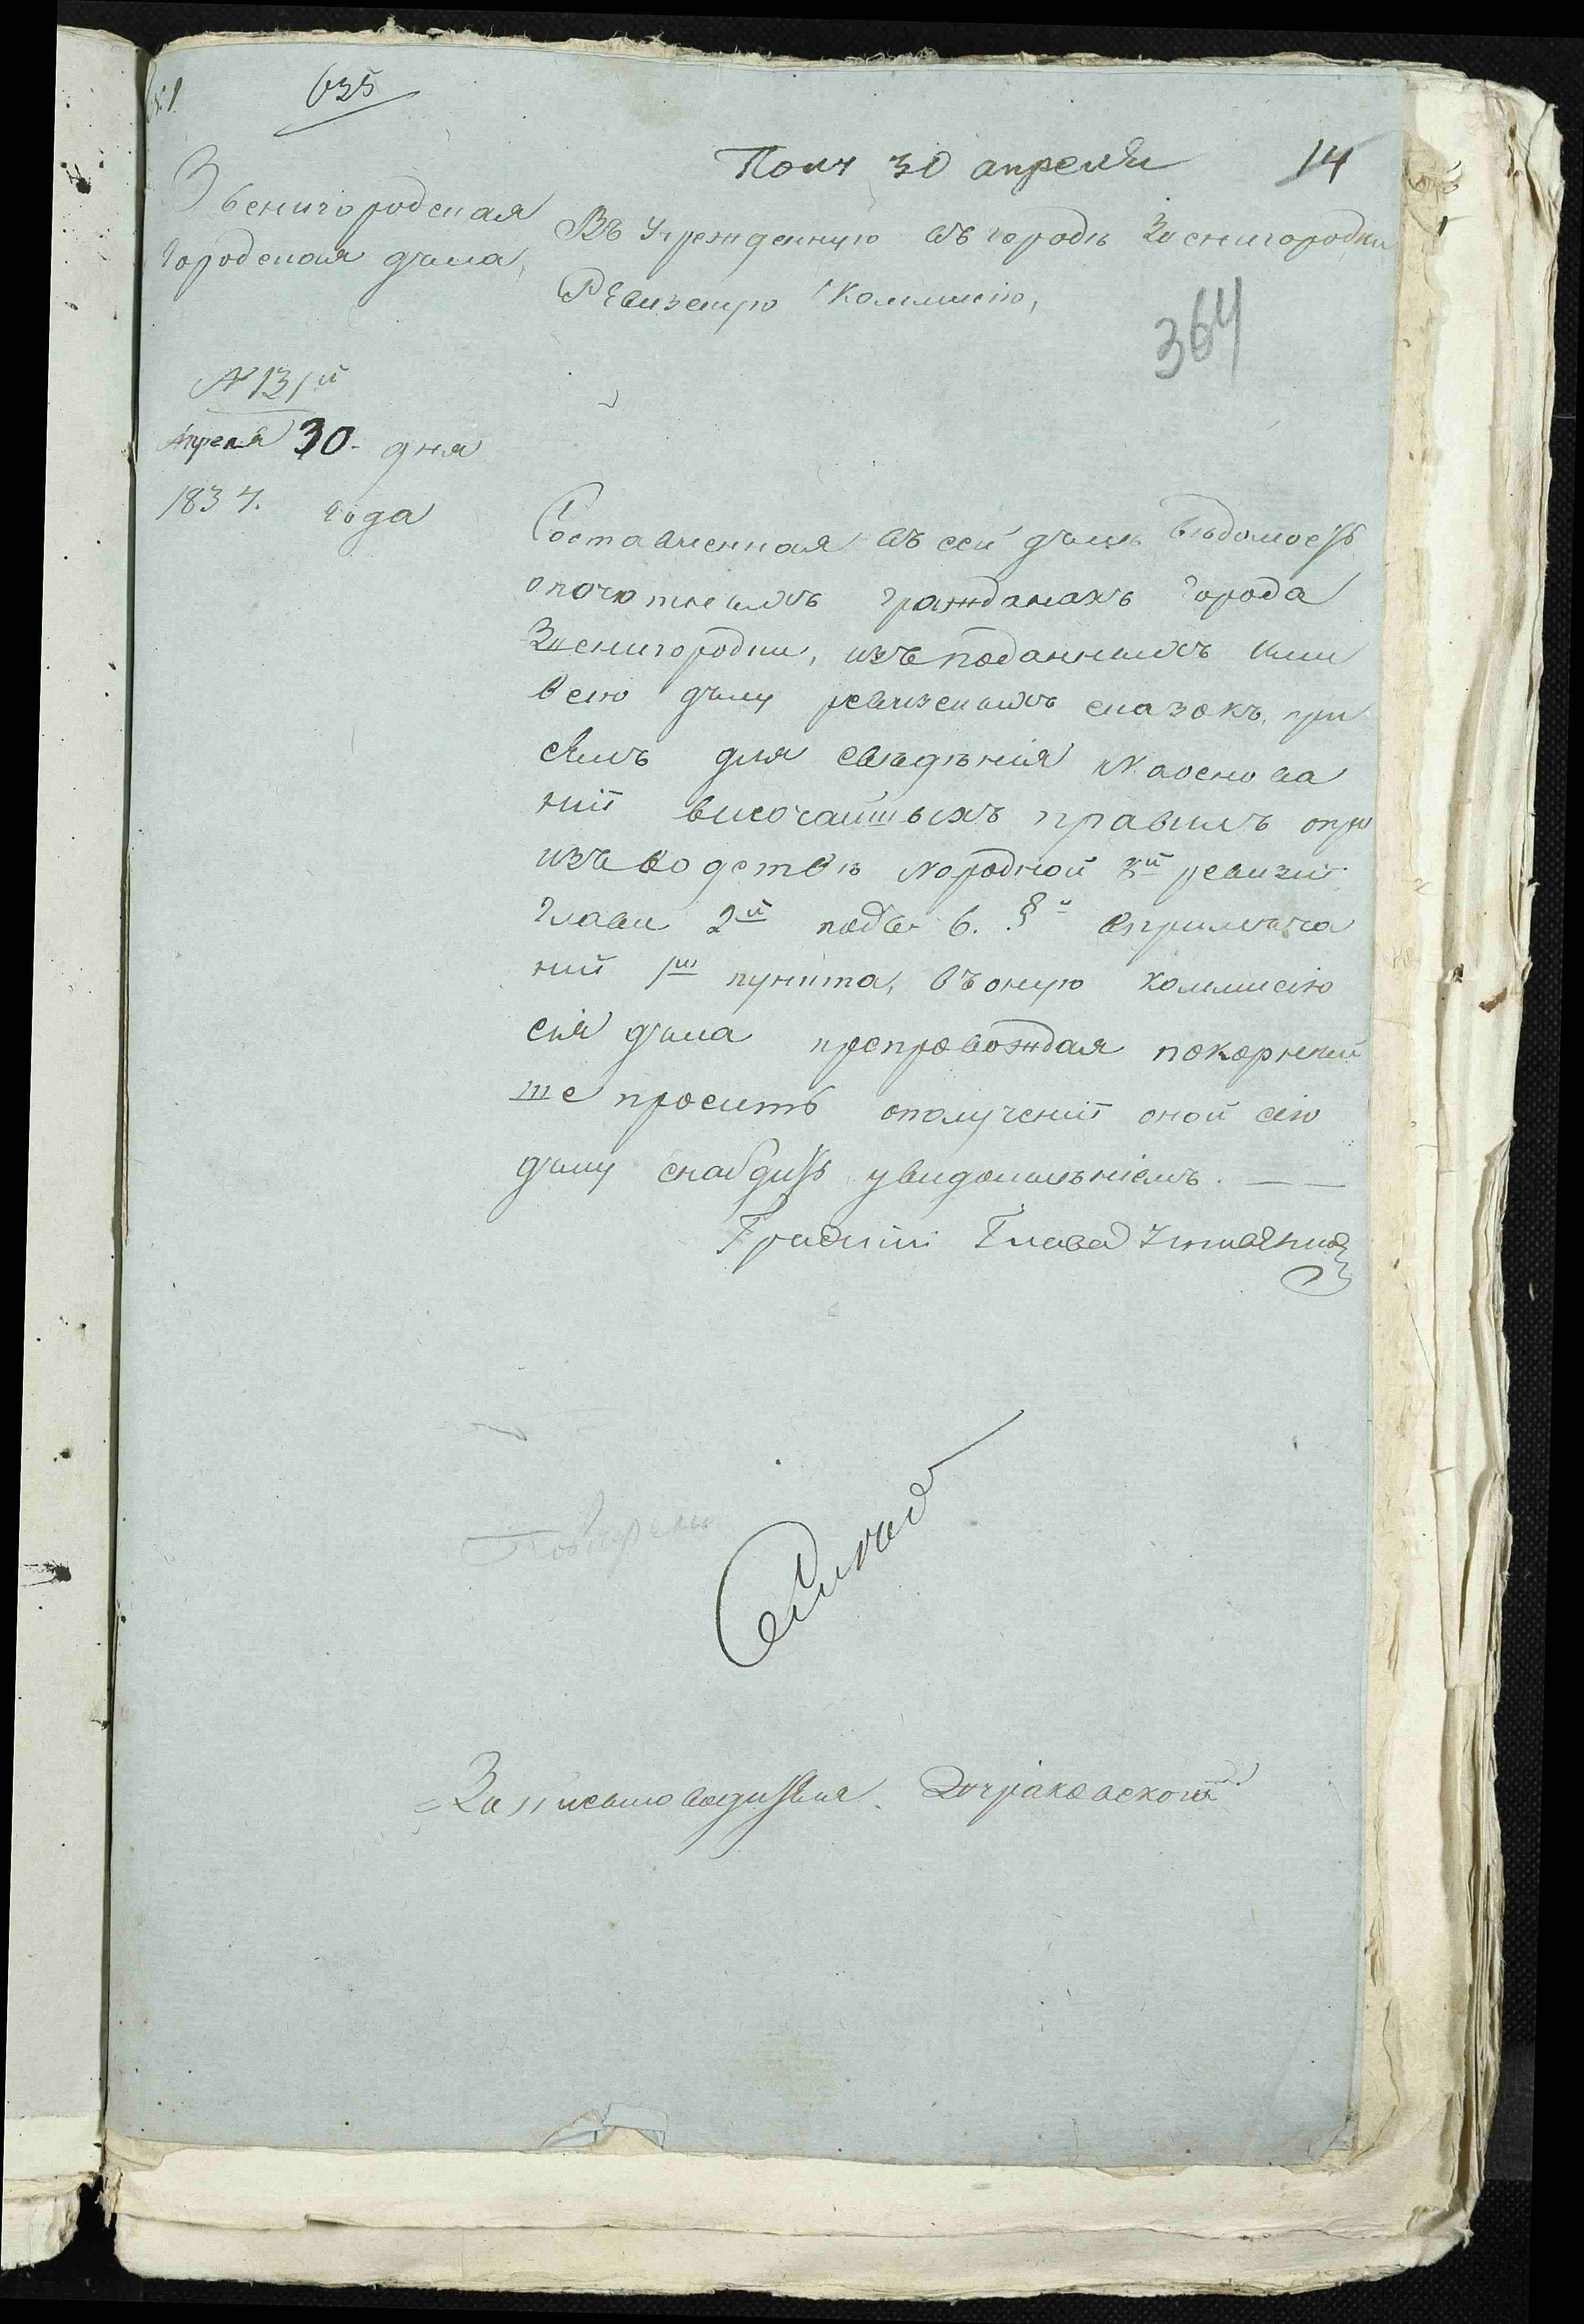 635
Полч 30 апреля
14
Звенигородская
Городская дума,
Въ Учрежденную въ городе Звенигородки
Ревизскую Коммисію,
364
№ 131й
Апреля 30. дня
1834. года
Составленная въ сей думе ведомость
опочотнеыхъ гражданахъ города
Звенигородки, изъ поданныхъ ими
всею думу ревизскыхъ сказокъ, при
семъ для сведенія Наоснова
ніи височайшыхъ правилъ опро
изъводстве Народной 8й ревизіи
Главы 2й подъ 6. § впримеча
ний 1го пункта, въоную коммисію
сия дума препровождая покорней
ше просить ополученіи оной сію
думу снабдить увидомленіемъ.
Градскій Глава
Запісмоводителя